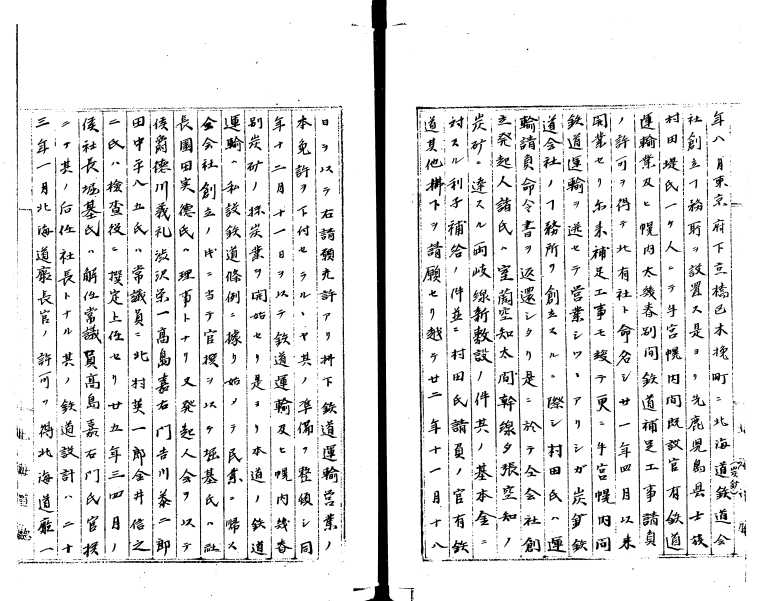 年八月東京府下京橋区木挽町ニ北海道鉄道会
社創立事務所ヲ設置ス是ヨリ先鹿児島県士族
村田堤氏一個人ニテ手宮幌内間既設官有鉄道
運輸業及ヒ幌内太幾春別間鉄道補足工事請負
ノ許可ヲ得テ北有社ト命名シ廿一年四月以来
開業セリ尓来補足工事モ竣テ更ニ手宮幌内間
鉄道運輸ヲ逓セテ営業シツヽアリシガ炭鉱鉄
道会社ノ事務所ヲ創立スルニ際シ村田氏ハ運
輸請負命令書ヲ返還シタリ是ニ於テ仝会社創
立発起人諸氏ハ室蘭空知太間幹線夕張空知ノ
炭砿ニ達スル両岐線新敷設ノ件其ノ基本金ニ
対スル利子補給ノ件並ニ村田氏請負ノ官有鉄
道其他拂下ヲ請願セリ越テ廿二年十一月十八
日ヲ以テ右請願允許アリ拝下鉄道運輸営業ノ
本免許ヲ下付セラルヽヤ其ノ準備ヲ整頓シ同
年十二月十一日ヲ以テ鉄道運輸及ヒ幌内幾春
別炭砿ノ採炭業ヲ開始セリ是ヨリ本道ノ鉄道
運輸ハ私設鉄道條例ニ據リ始メテ民業ニ帰ス
仝会社創立ノ時ニ当テ官撰ヲ以テ堀基氏ハ社
長園田実徳氏ハ理事トナリ又発起人会ヲ以テ
侯爵徳川義礼渋沢栄一高島嘉右門吉川泰二郎
田中平八五氏ハ常議員ニ北村英一郎金井信之
二氏ハ検査役ニ撰定上任セリ廿五年三四月ノ
侯社長堀基氏ハ解任常議員高島嘉右門氏官撰
ニテ其ノ后任社長トナル其ノ鉄道設計ハ二十
三年一月北海道廳長官ノ許可ヲ得北海道廳一